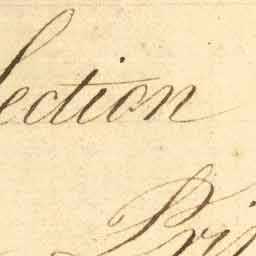 lection
Pri